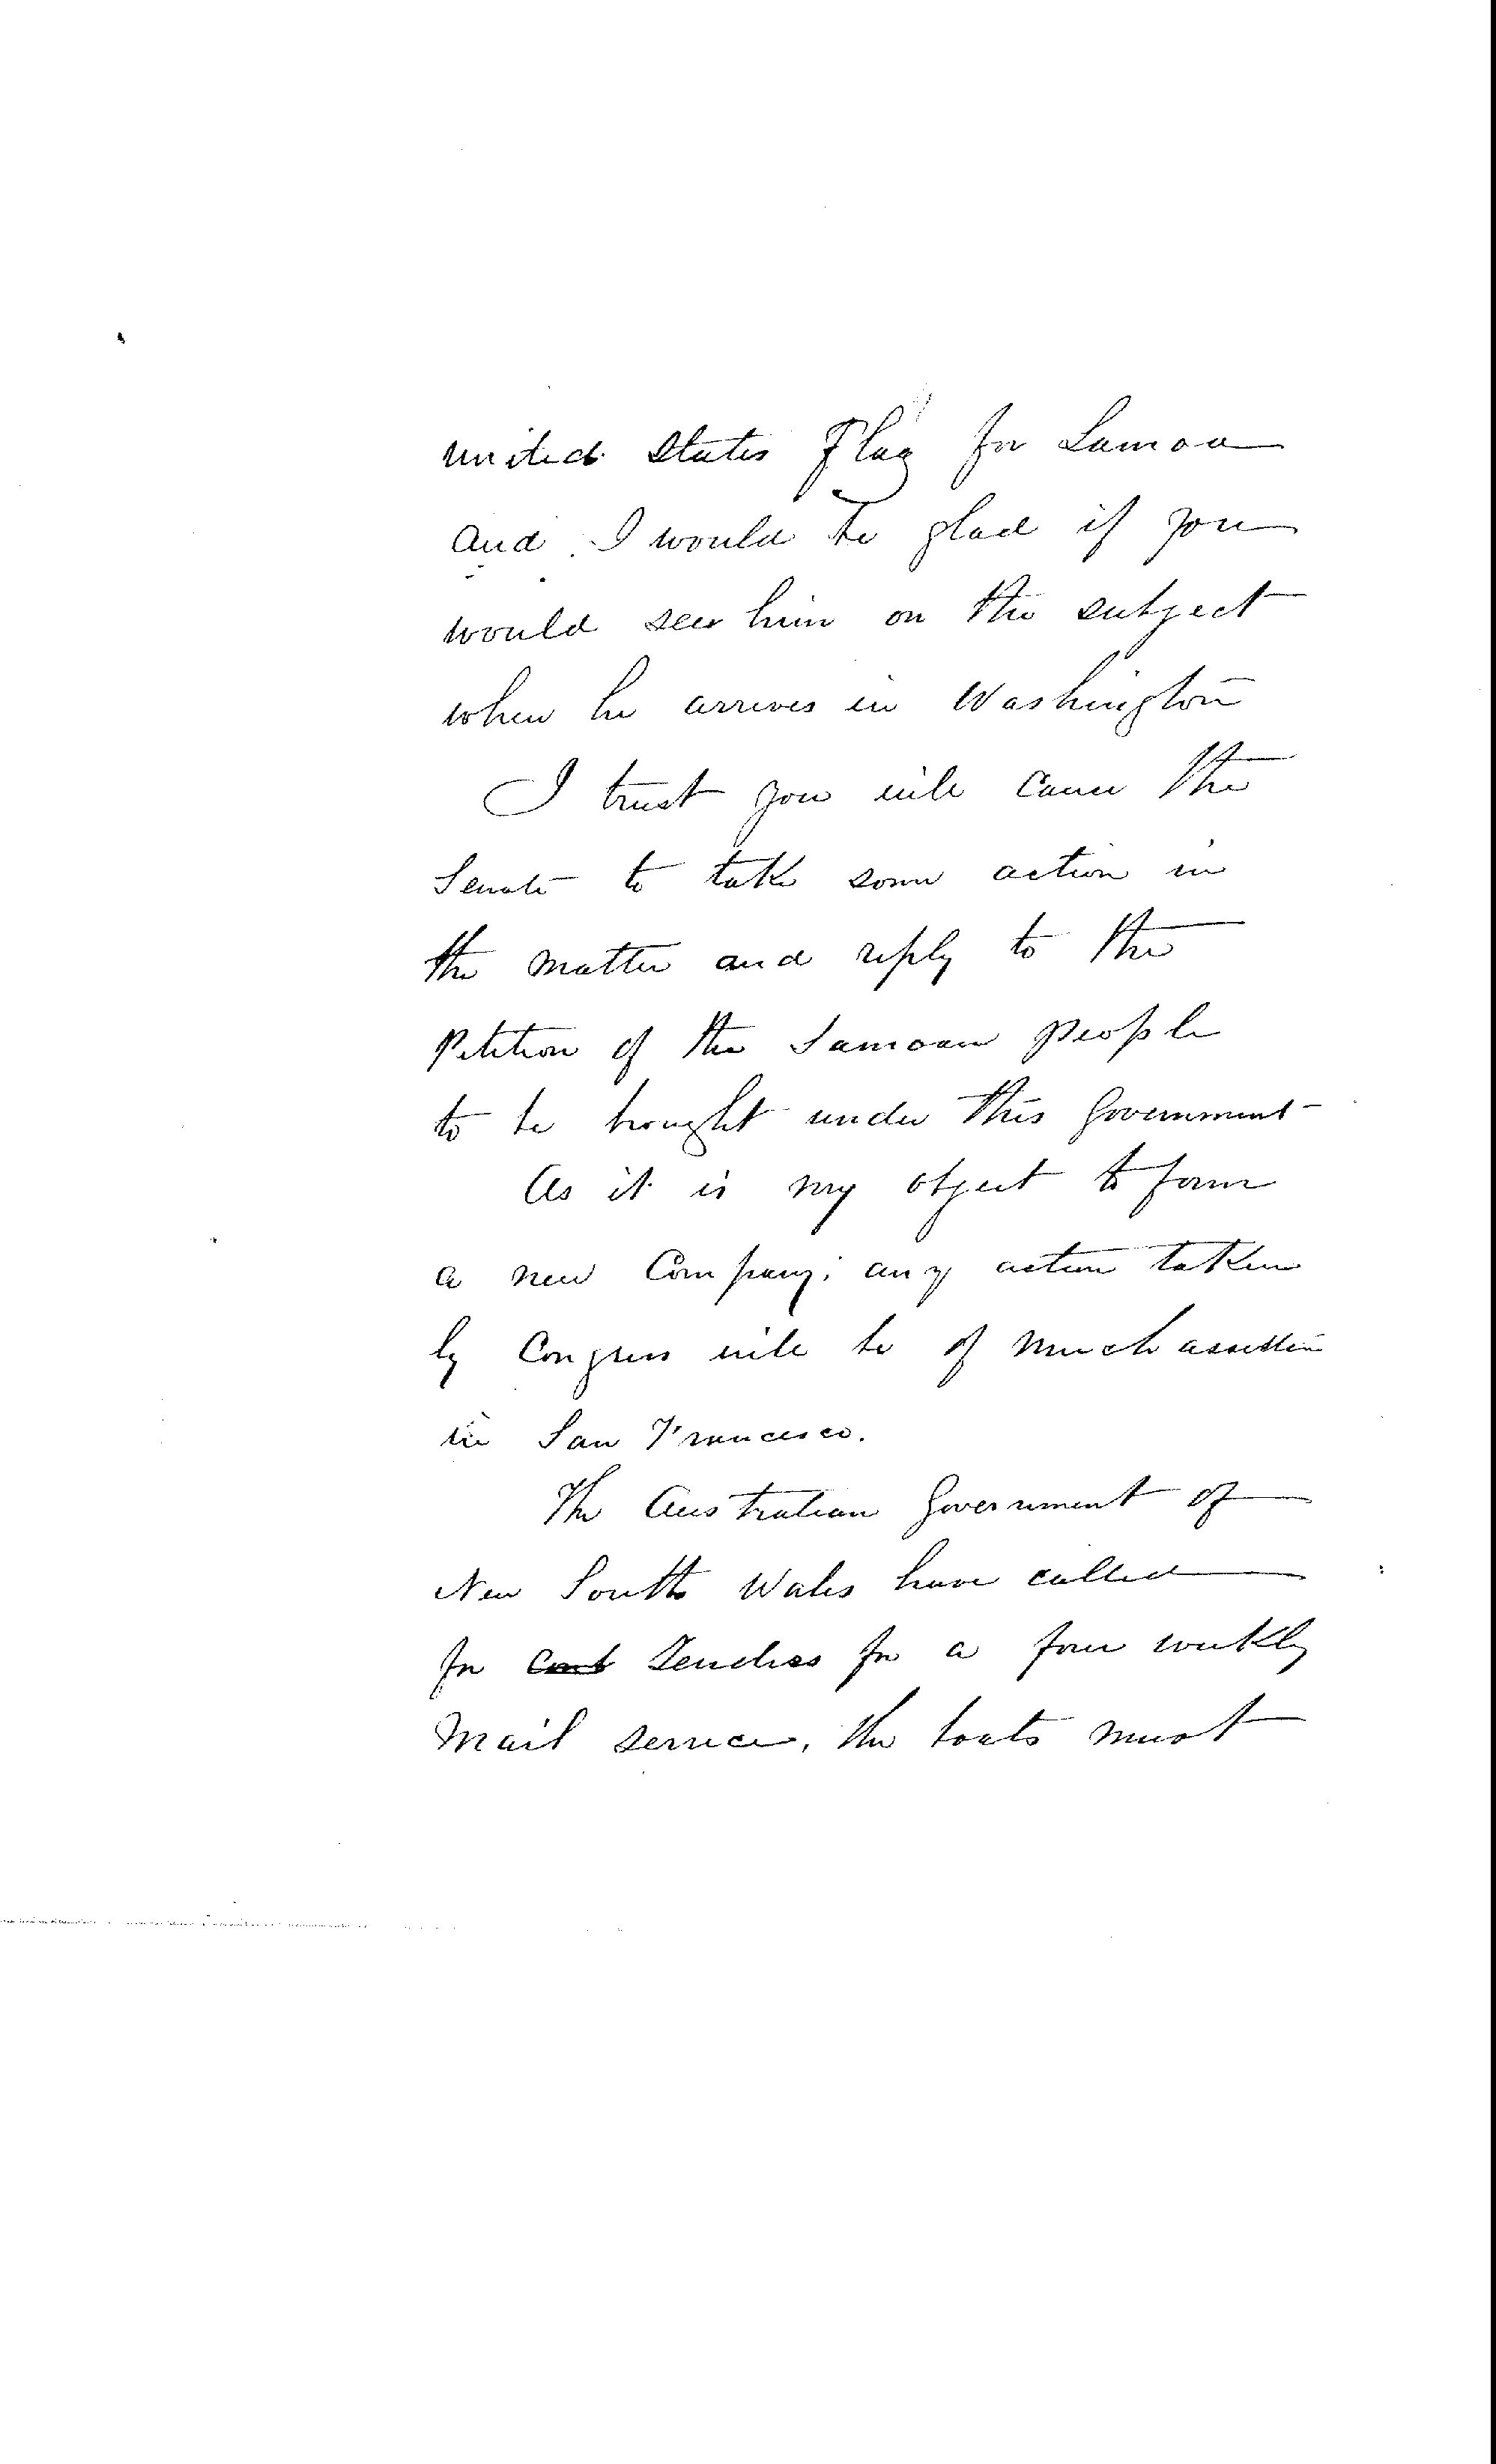 United States Flag for Samoa
and I would be glad if you
would see him on the subject
when he arrives in Washington
I trust you will cause the
Senate to take some action in
the matter and reply to the
Petition of the Samoan People
to be brought under this Government
As it is my object to form
a new Company, any action taken
by Congress will be of much
in San Francisco.
The Australian Government of
New South Wales have called
for Tenders for a four weekly
Mail service, the boats must